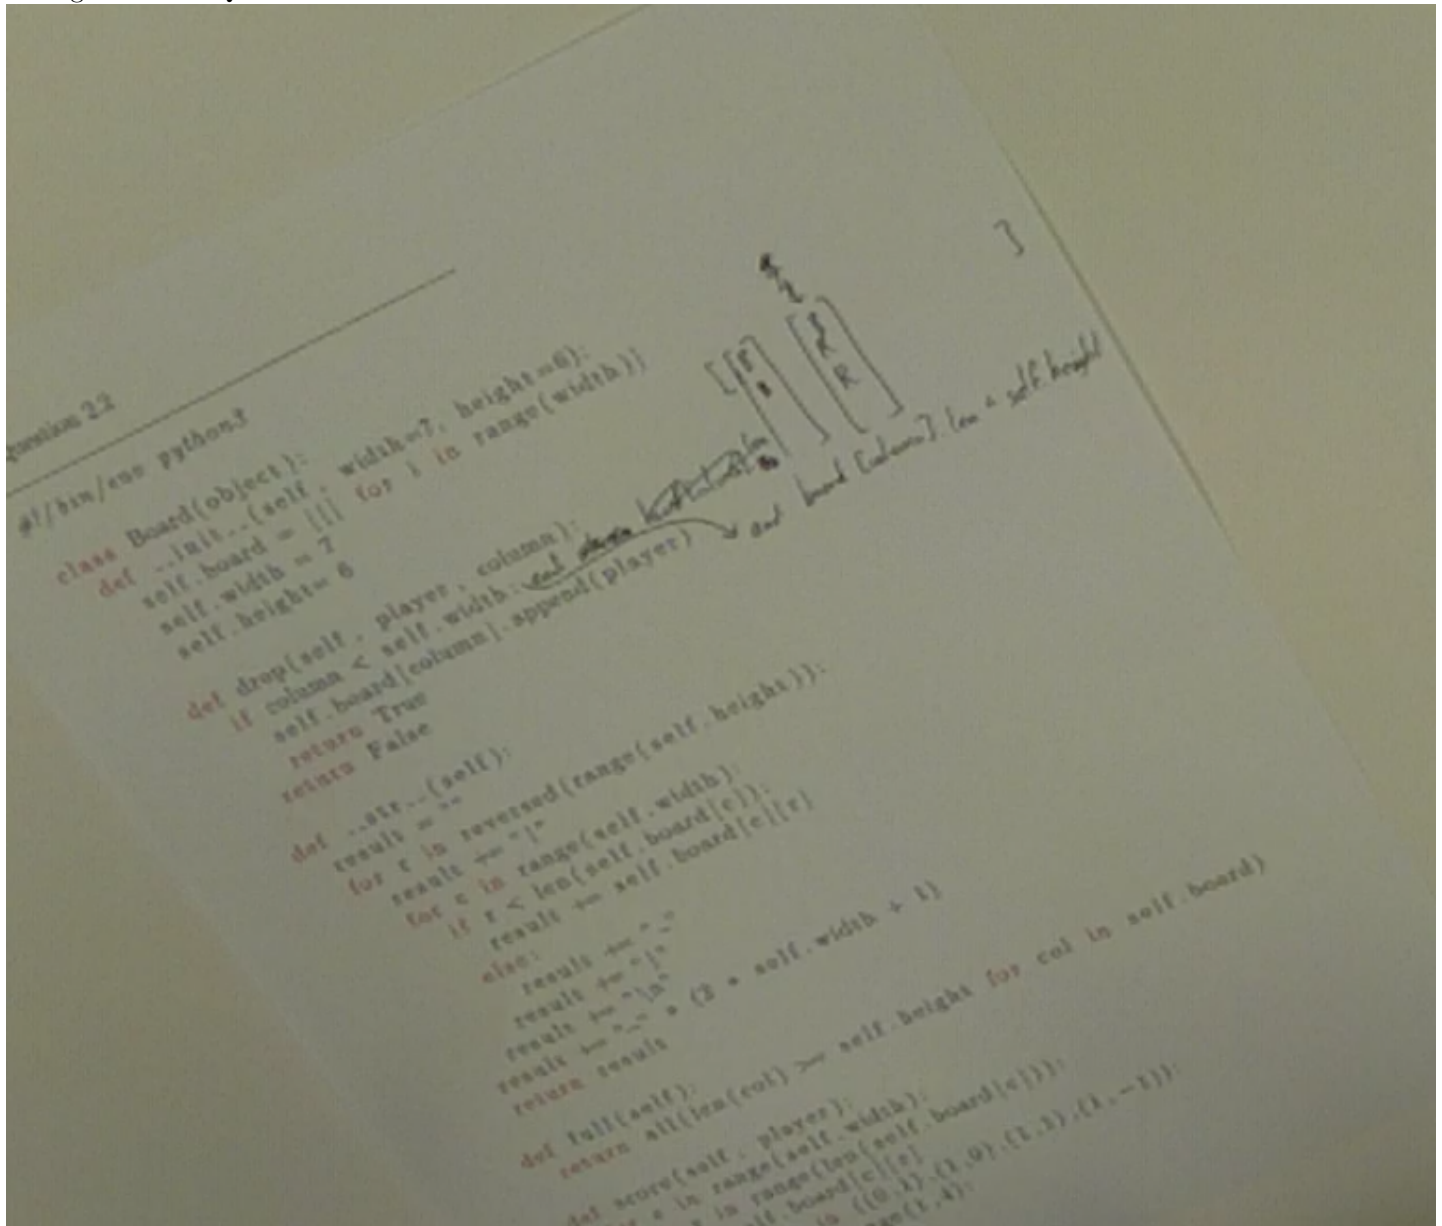 Question 2.2
#!/bin/env python3
class Board(object):
def __init__(self, width=7, height=6):
self.board = [[] for i in range(width)]
self.width = 7
self.height= 6
def drop(self, player, column):
if column < self.width:
self.board[column].append(player)
and board [column]. len < self.height
return True
return False
def __str__(self):
result = ""
for r in reversed(range(self.height)):
result += "|"
for c in range(self.width):
if r < len(self.board[c]):
result += self.board[c][r]
else:
result += "_"
result += "|"
result += "\n"
result += "-" * (2 * self.width + 1)
return result
def full(self):
return all(len(col) >= self.height for col in self.board)
def score(self, player):
for c in range(self.width):
in range(len(self.board[c])):
self.board[c][r]
in ((0,1),(1,0),(1,1),(1,-1)):
range(1,4):